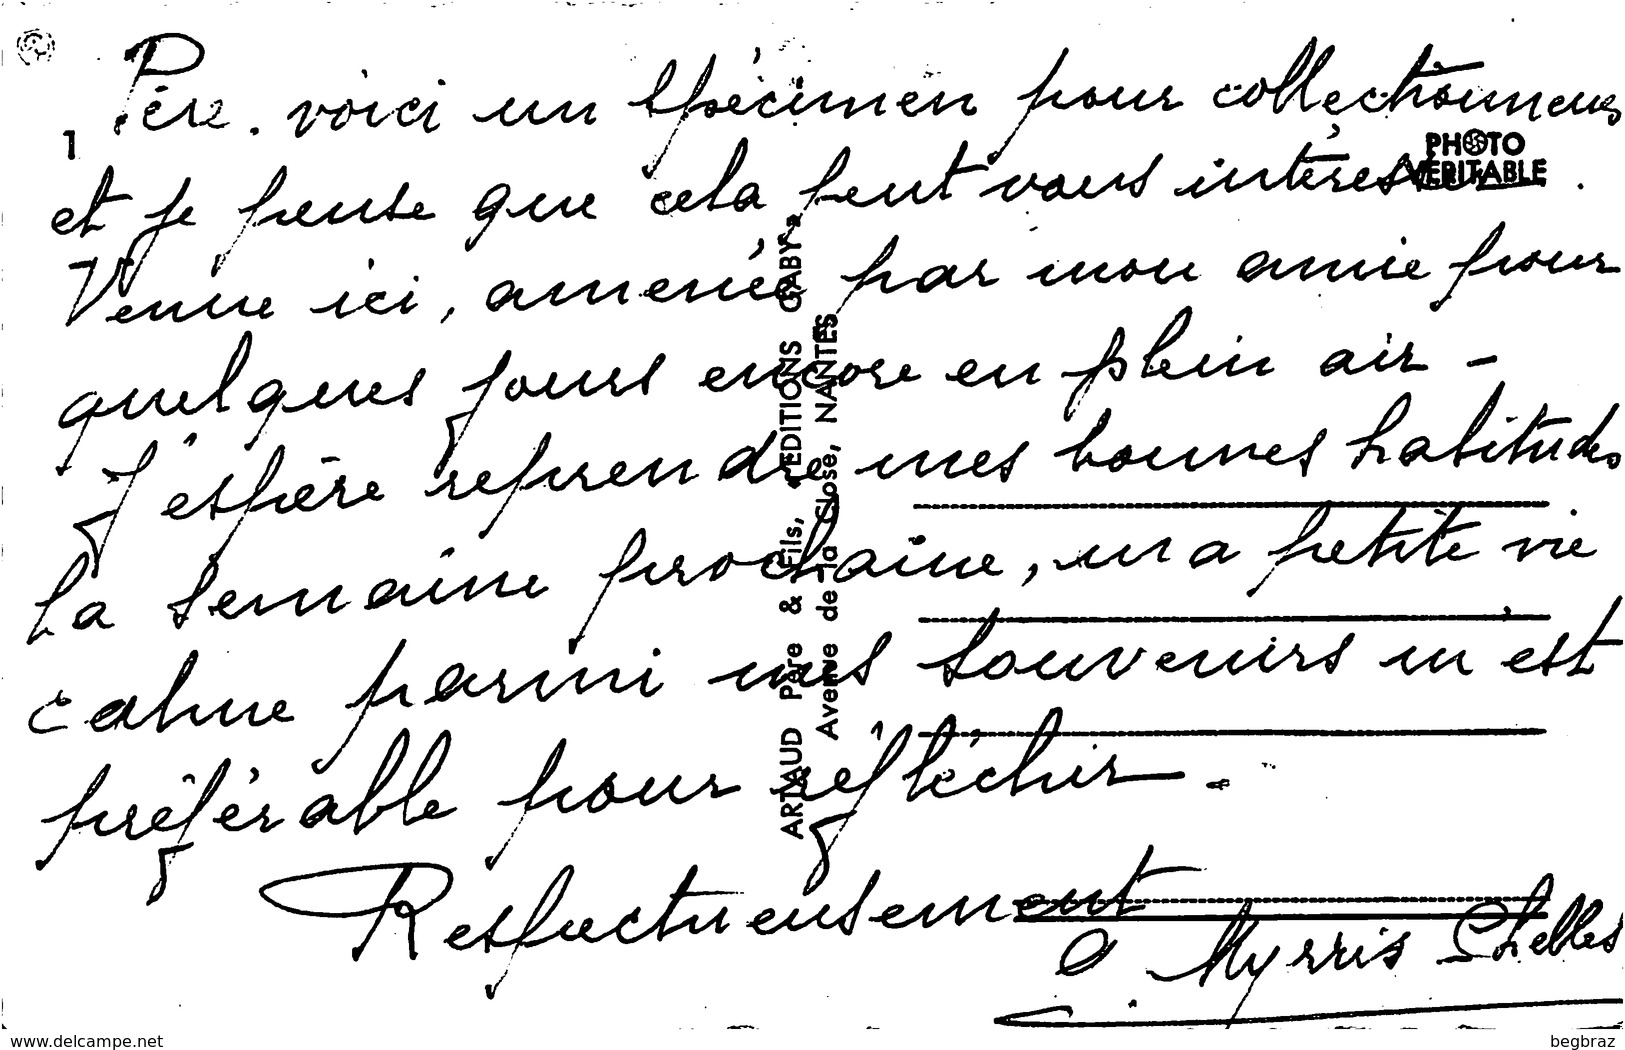 Père. voici un spécimen pour collectionneurs
1
PHOTO
VÉRITABLE
et je pense que cela peut vous intéresser.
Venue ici, amenée par mon amie pour
quelques jours encore en plein air -
J'espère reprendre mes bonnes habitudes
la semaine prochaine, ma petite vie
calme parmi mes souvenirs m'est
préférable pour réfléchir.
Respectueusement
Myrris
ARTAUD Père & Fils, "EDITIONS GABY"
Avenue de la Close, NANTES
www.delcampe.net
begbraz